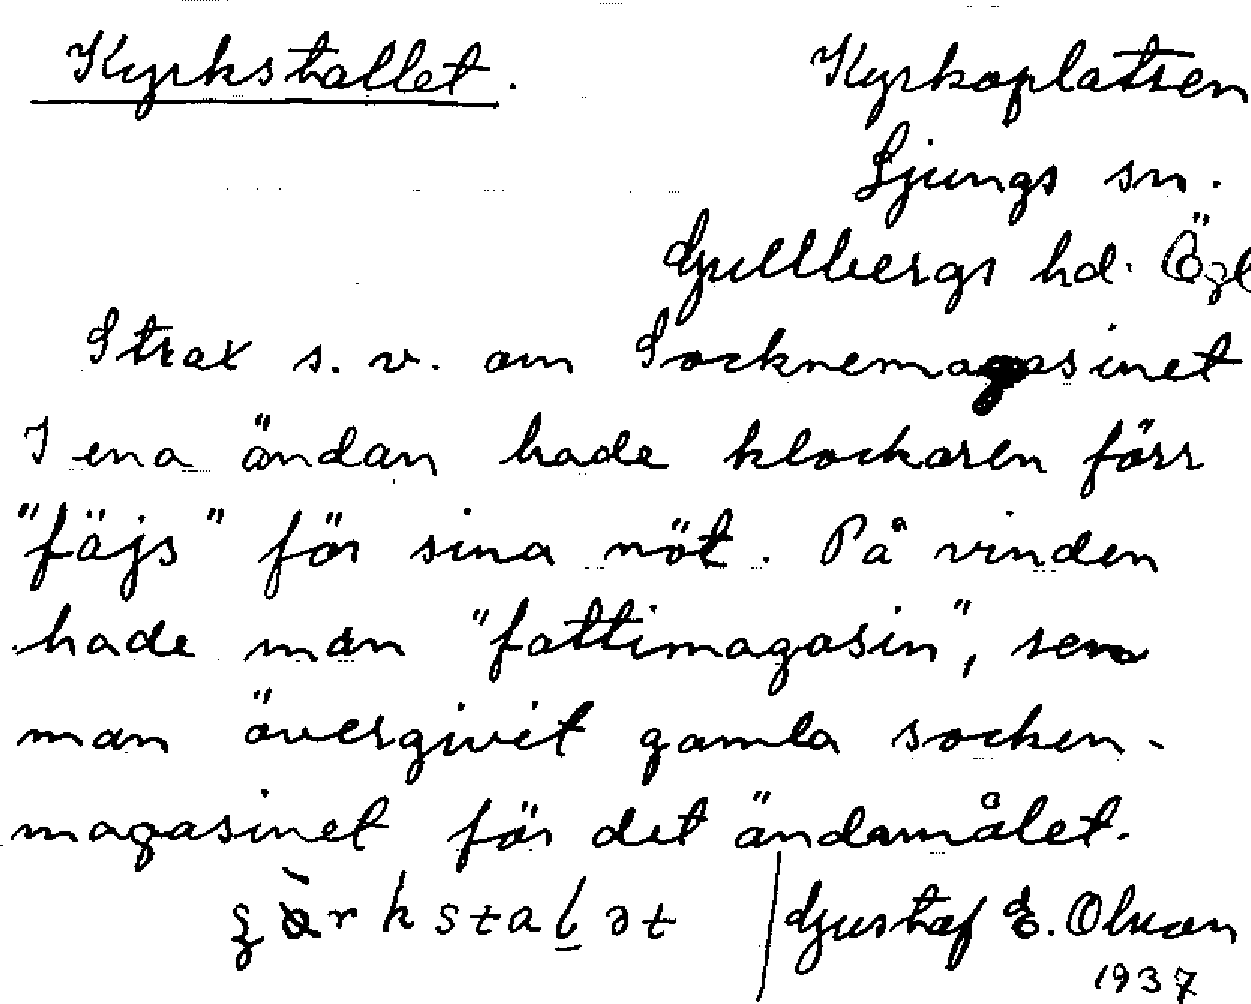 Kyrkstallet. Kyrkoplatsen
Ljungs sn.
Gullbergs hd. Ögl
Strax s.v. om Socknemagasinet
I ena ändan hade klockaren förr
"fäjs" för sina nöt. På vinden
hade man "fattimagasin", sen
man övergivit gamla socken-
magasinet för det ändamålet.
Gustaf E. Olsson
1937